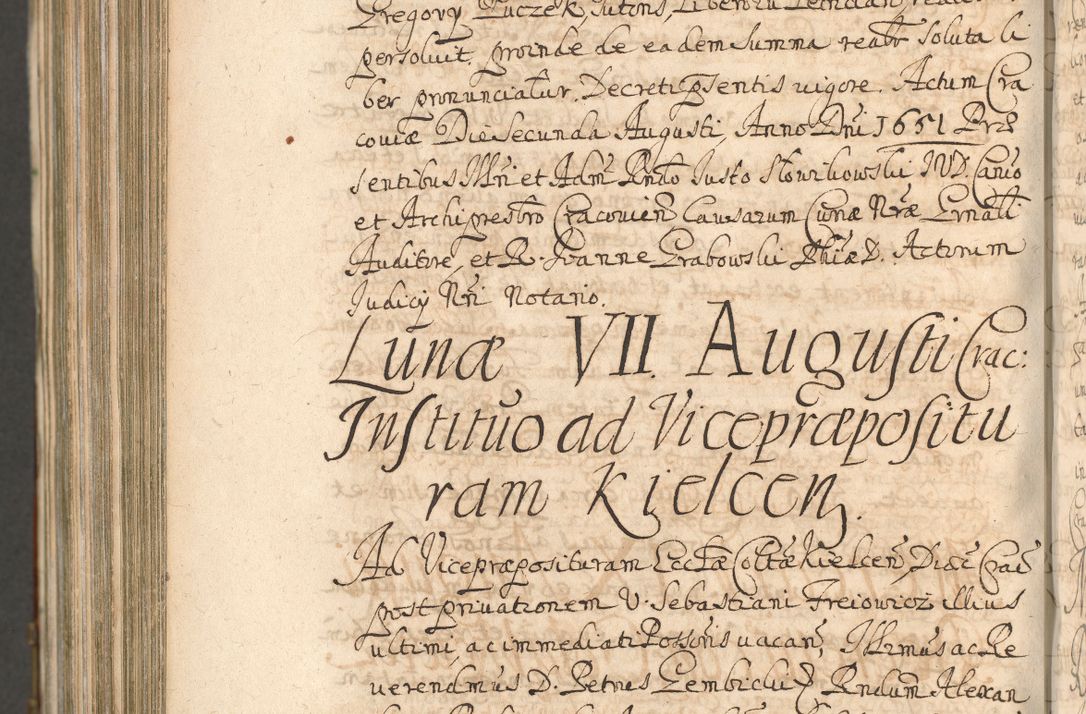 Gregory Łuczek, sutoris,
persoluit, proinde de eadem summa realr soluta li
ber pronunciatur. Decreti pñsentis uigore. Actum Cra
couiæ Die Secunda Augusti, Anno Dni 1651 Præ
sentibus Mñ et Adm Rndo Iusto Słowikowski IVD. Canõ
et Archipresbro Cracouien Causarum Curiæ Nræ Grnali
Auditore, et R. Ioanne Grabowski Phiæ D. Actorum
Iudicij Nri Notario.
Lunæ VII. Augusti Crac:
Institutio ad Vicepræpositu
ram Kielcen.
Ad Vicepræposituram Ecclæ Coltæ Kielcen Diæc Crac
post priuationem V. Sebastiani Freiowicz illius
ultimi, ac immediati Possoris uacan, Illrmus ac Re
uerendmus D. Petrus Gembicki Rndum Alexan